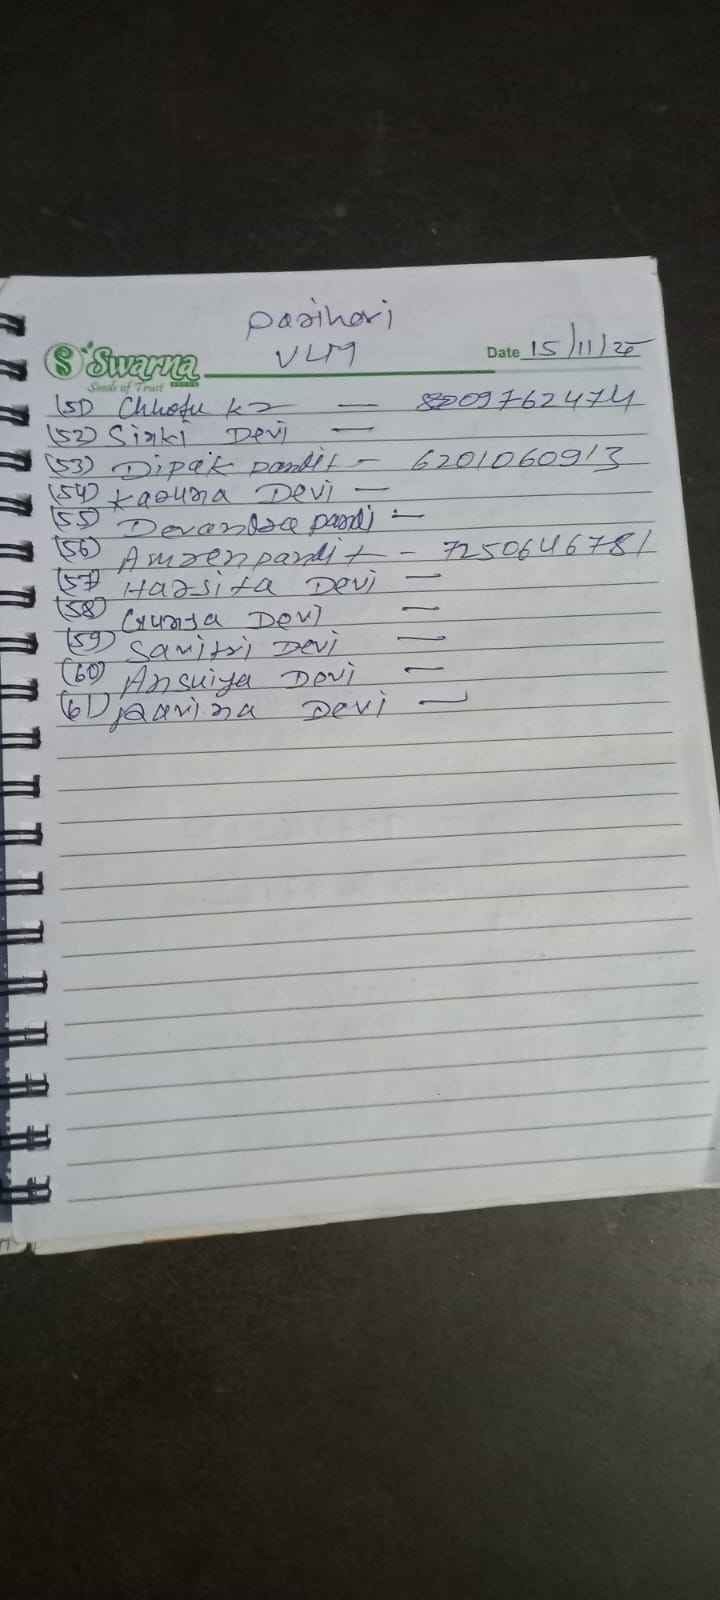 Parihari
VLM
Swarna
Seeds of Trust
Date 15/11/25
(51) Chhotu kr — 8209762474
(52) Sinki Devi —
(53) Dipak pandit - 6201060913
(54) Karuna Devi —
(55) Devandra pandi —
(56) Amren pandit - 7250646781
(57) Harsita Devi —
(58) Devi —
(59) Savitri Devi —
(60) Ansuiya Devi —
(61) Devi —